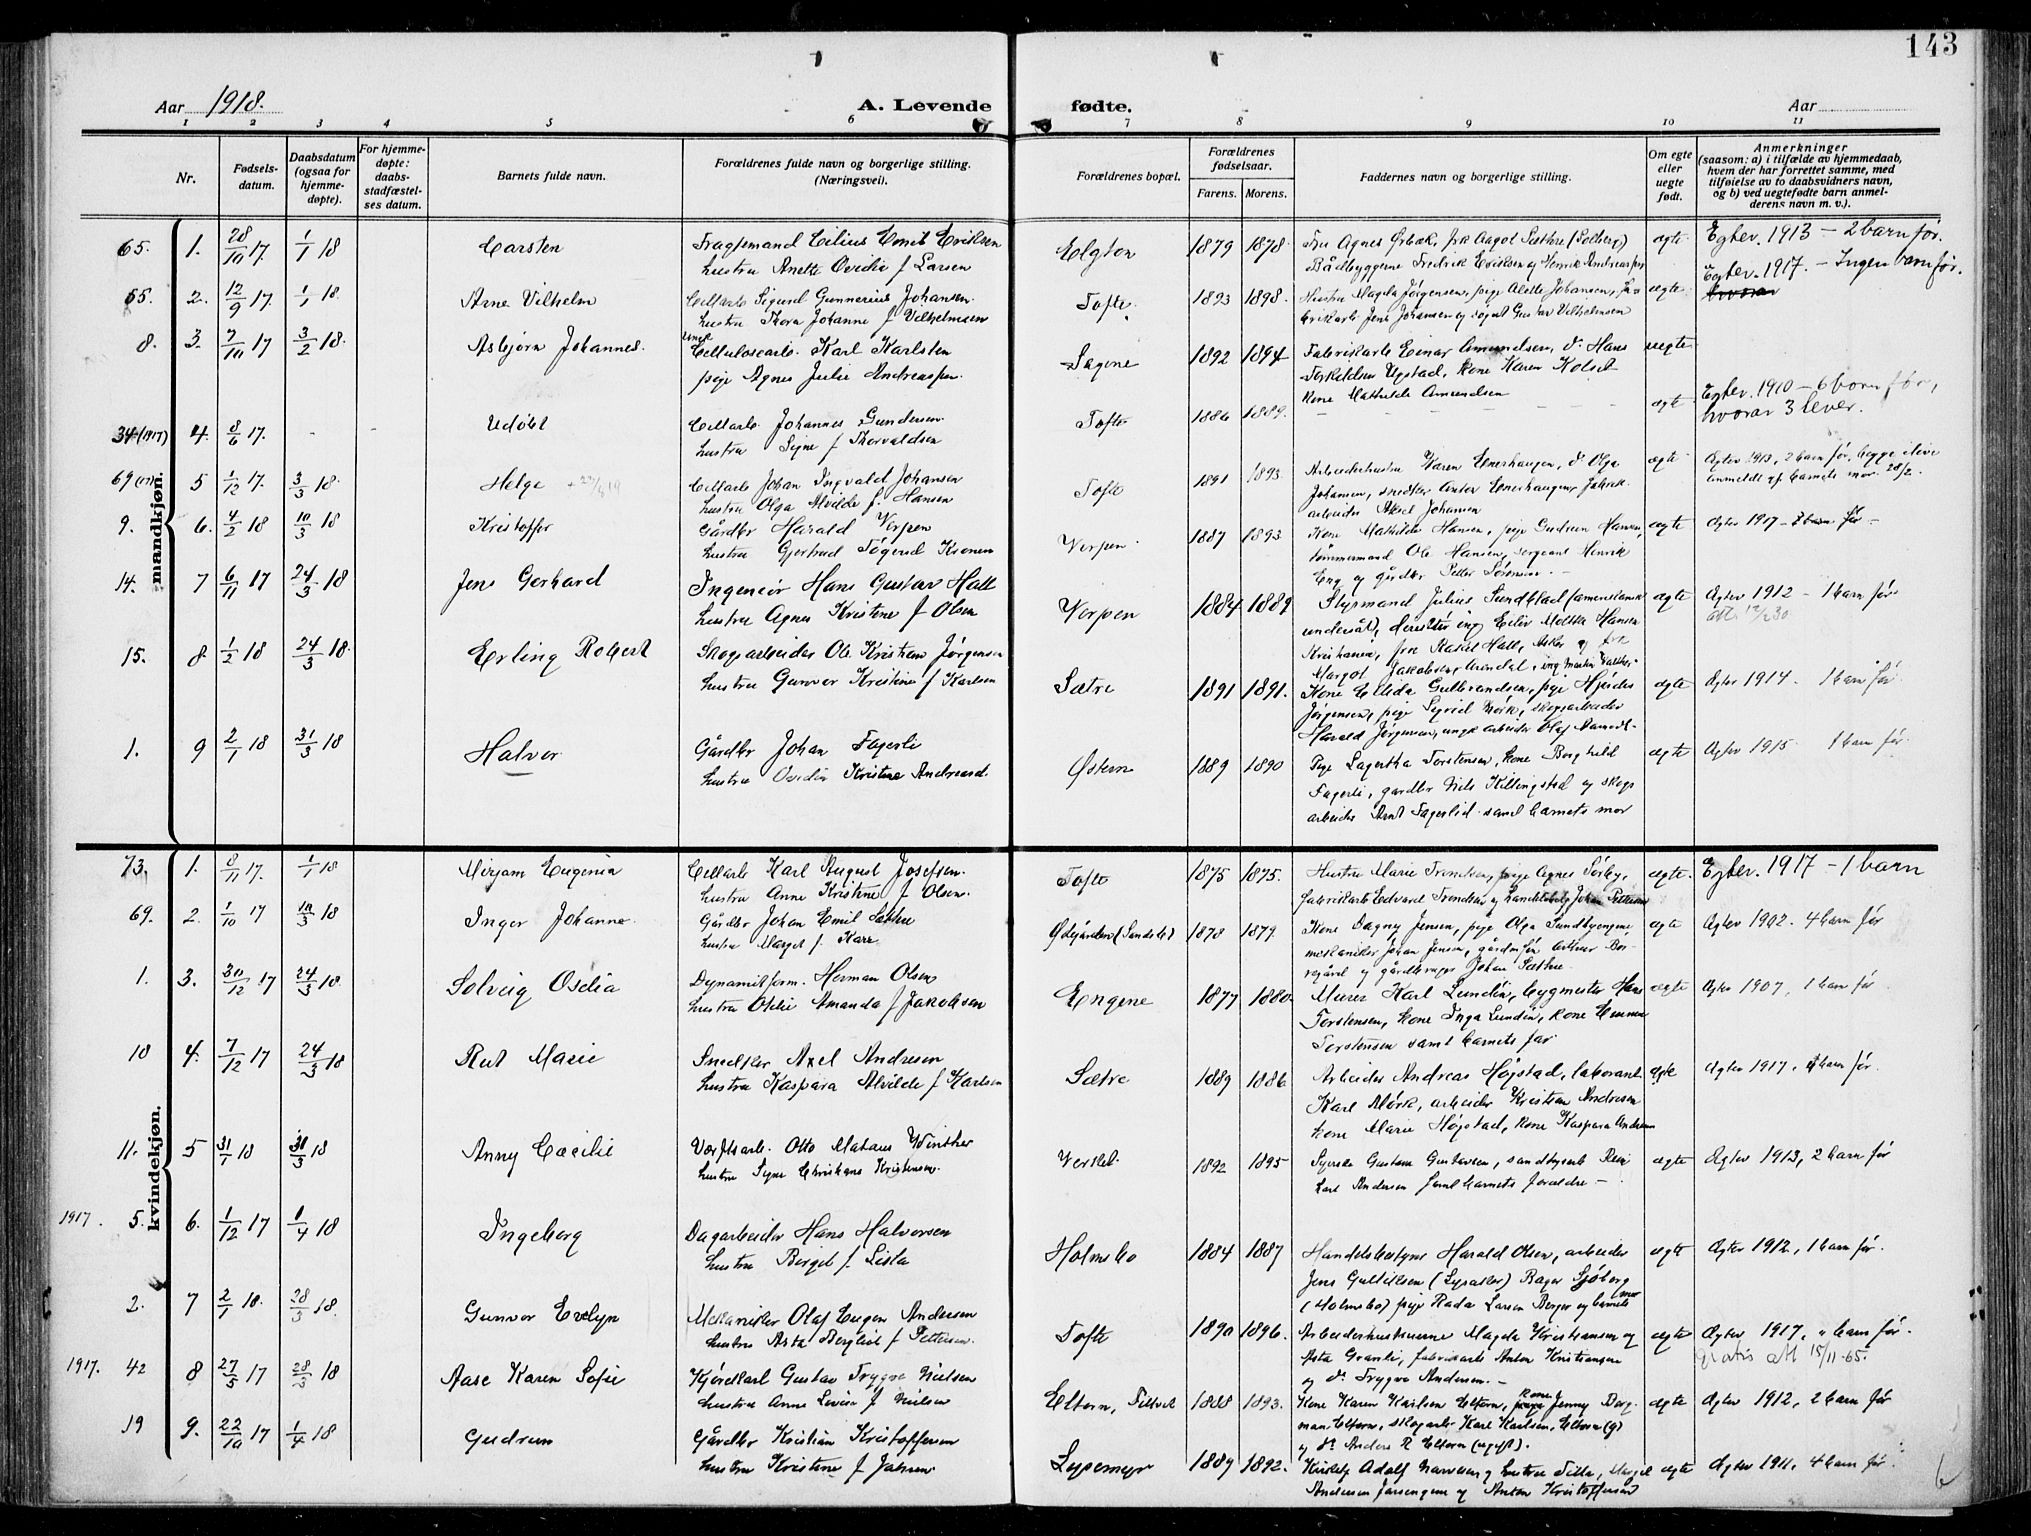 143
Aar 1918.
A. Levende fødte.
Aar
1 2 3 4 5 6 7 8 9 10 11
Nr.
Fødsels-
datum.
Daabsdatum
(ogsaa for
hjemme-
døpte).
For hjemme-
døpte:
daabs-
stadfæstel-
ses datum.
Barnets fulde navn.
Forældrenes fulde navn og borgerlige stilling.
(Næringsvei).
Forældrenes bopæl.
Forældrenes
fødselsaar.
Farens. Morens.
Faddernes navn og borgerlige stilling.
Om egte
eller
uegte
født.
Anmerkninger
(saasom: a) i tilfælde av hjemmedaab,
hvem der har forrettet samme, med
tilføielse av to daabsvidners navn,
og b) ved uegtefødte barn anmel-
derens navn m. v.).
mandkjøn.
65. 1. 28/10 17. 1/1 18 Carsten
Fragtemand Cilius Emil Eriksen
hustru Anette Ovidie f Larsen
Elgton 1879 1878.
Fru Agnes Ørbæk, frk Aagot Sæthre (Solberg)
Bådbyggerne Fredrik Eriksen og Henrik Andreassen
ægte Egtev. 1913 — 2 barn før.
55. 2. 12/9 17. 1/1 18. Arne Vilhelm
Cellarb. Sigurd Gunnerius Johansen
hustru Thora Johanne f Vilhelmsen
Tofte. 1893 1898.
Hustru Magda Jørgensen, pige Alette Johansen,
Jens Johansen og Gustav Vilhelmsen
ægte Egtev. 1917. — Ingen barn før.
8. 3. 7/10 17 3/2 18. Asbjørn Johannes.
Ungk. Cellulosearb. Karl Karlsten
pige Agnes Julie Andreassen.
Sagene 1892 1894
Fabrikarb Einar Amundsen, do Hans
Torkildsen Ugstad, kone Karen Kolset
kone Mathilde Amundsen
uegte
34 (1917) 4. 8/6 17. - Udøbt
Cellarb. Johannes Gundersen
hustru Signe f Thorvaldsen
Tofte 1886 1889.
ægte Egtev. 1910 — 6 barn før,
hvorav 3 lever.
69 (17) 5 1/12 17. 3/3 18. Helge
Cellarb. Johan Ingvald Johansen
hustru Olga Alvilde f. Hansen
Tofte 1891 1893.
Arbeiderhustru Karen Enerhaugen, do Olga
Johansen, snedker Anton Enerhaugen, fabrik-
arbeider Aksel Johansen
ægte Ægtev 1913, 2 barn før, begge i live
anmeldt af barnets mor 28/2.
9. 6. 4/2 18 10/3 18 Kristoffer
Gårdbr Harald Verpen
hustru Gjertrud Føgerud Kronen
Verpen. 1887 1893
Kone Mathilde Hansen, pige Gudrun Hansen,
tømmermand Ole Hansen, sergeant Henrik
Eng og gårdbr Petter Sørensen. —
ægte Ægtev 1917 — barn før —
14. 7 6/11 17 24/3 18 Jens Gerhard
Ingeniør Hans Gustav Hall
hustru Agnes Kristine f Olsen
Verpen 1884 1889
Styrmand Julius Sundblad (amerikansk
undersåt), ing Eiliv Moltke Hansen
Kristiania, frk Rakel Hall, Asker og frk
Margot Jakobsen Arendal, ing Martin
ægte Ægtev 1912 — 1 barn før
att. 12/2 30
15. 8 1/2 18 24/3 18. Erling Robert
Skogsarbeider Ole Kristian Jørgensen
hustru Gunvor Kristine f Karlsen
Sætre 1891 1891.
Kone Ellida Gulbrandsen, pige Hjørdis
Jørgensen, pige Sigrid Mørk, skogsarbeider
Harald Jørgensen, ungk arbeider Olaf
ægte Ægtev 1914. 1 barn før.
1. 9 2/1 18 31/3 18 Halvor
Gårdbr Johan Fagerli
hustru Ovidia Kristine Andreasd.
Østern 1889 1890
Pige Lagertha Torstensen, kone Borghild
Fagerli, gårdbr Nils Killingstad og skogs
arbeider Arnt Fagerlid samt barnets mor
ægte Ægtev 1915. 1 barn før.
kvindekjøn.
73. 1. 8/11 17. 1/1 18 Mirjam Eugenia
Cellarb Karl August Josefsen
hustru Anne Kristine f Olsen.
Tofte 1875 1875.
Hustru Marie Trondsen, pige Agnes Sørby,
fabrikarb Edvard Trondsen og handelsbetj Johan Pettersen
ægte. Egtev. 1917 — 1 barn
69. 2. 1/10 17 10/3 18 Inger Johanne.
Gårdbr Johan Emil Sæthre
hustru Margit f Kare
Ødegården (Sandsbø) 1878 1879.
Kone Dagny Jensen, pige Olga Sundbyengene,
mekaniker Johan Jensen, gårdmfør Arthur Bor-
regård og gårdbruger Johan Sæthre
ægte Ægtev 1902. 4 barn før
1. 3. 30/12 17 24/3 18. Solveig Osilia
Dynamitform. Herman Olsen
hustru Otilie Amanda f Jakobsen
Engene 1877 1880.
Murer Karl Lundin, bygmester Hans
Torstensen, kone Inga Lundin, kone Emma
Torstensen samt barnets far
ægte Ægtev 1907, 1 barn før
10 4. 7/12 17 24/3 18 Rut Marie
Snedker Axel Andresen
hustru Kaspara Alvilde f Karlsen
Sætre 1889 1886
Arbeider Andreas Høgstad, laborant
Karl Mørk, arbeider Kristian Andresen
kone Marie Høgstad, kone Kaspara Andresen
ægte Ægtev 1917, barn før.
11. 5 31/1 18 31/3 18 Anny Cæcilie
Værftsarb. Otto Mathæus Winther
hustru Signe Christiane Kristensen.
Verslet 1892 1895
Gustava Gustavsen, Rein
Karl Andersen samt barnets forældre —
ægte Ægtev 1913, 2 barn før
1917. 5. 6. 1/12 17 1/4 18 Ingeborg
Dagarbeider Hans Halvorsen
hustru Birgit f. Lista
Holmsbo 1884 1887
Handelsbestyrer Harald Olsen, arbeider
Jens Gulliksen (Lysaker) Bager Sjøberg
(Holmsbo) pige Rada Larsen Berger og barnets mor
ægte Ægtev 1912, 1 barn før.
2. 7 2/1 18. 28/3 18. Gunvor Evelyn
Mekaniker Olaf Eugen Andersen
hustru Asta Bergliot f Pettersen.
Tofte 1890 1896.
Arbeiderhustruerne Magda Kristiansen og
Asta Granli, fabrikarb Anton Kristiansen
og do Trygve Andersen. —
ægte Ægtev 1917, " barn før.
gratis att 15/11-65.
1917. 42 8 27/5 17 28/3 18 Aase Karen Sofie
Kjørekarl Gustav Trygve Nielsen
hustru Anne Lovise f Nielsen
Eltorn, Filtvet 1888 1893.
Kone Karen Karlsen Eltorn, kone Jenny Berg-
man Eltorn, skogarb Karl Karlsen, Eltorn (g)
og do Anders R Eltorn (ugift).
ægte Ægtev 1912, 2 barn før
19 9. 22/10 17 1/4 18 Gudrun
Gårdbr Kristian Kristoffersen
hustru Kristine f Jahren.
Lysemyr 1889 1892.
Adolf og hustru Tilla, Margit
Andersen og Anton Kristoffersen
ægte Ægtev 1911, 4 barn før.